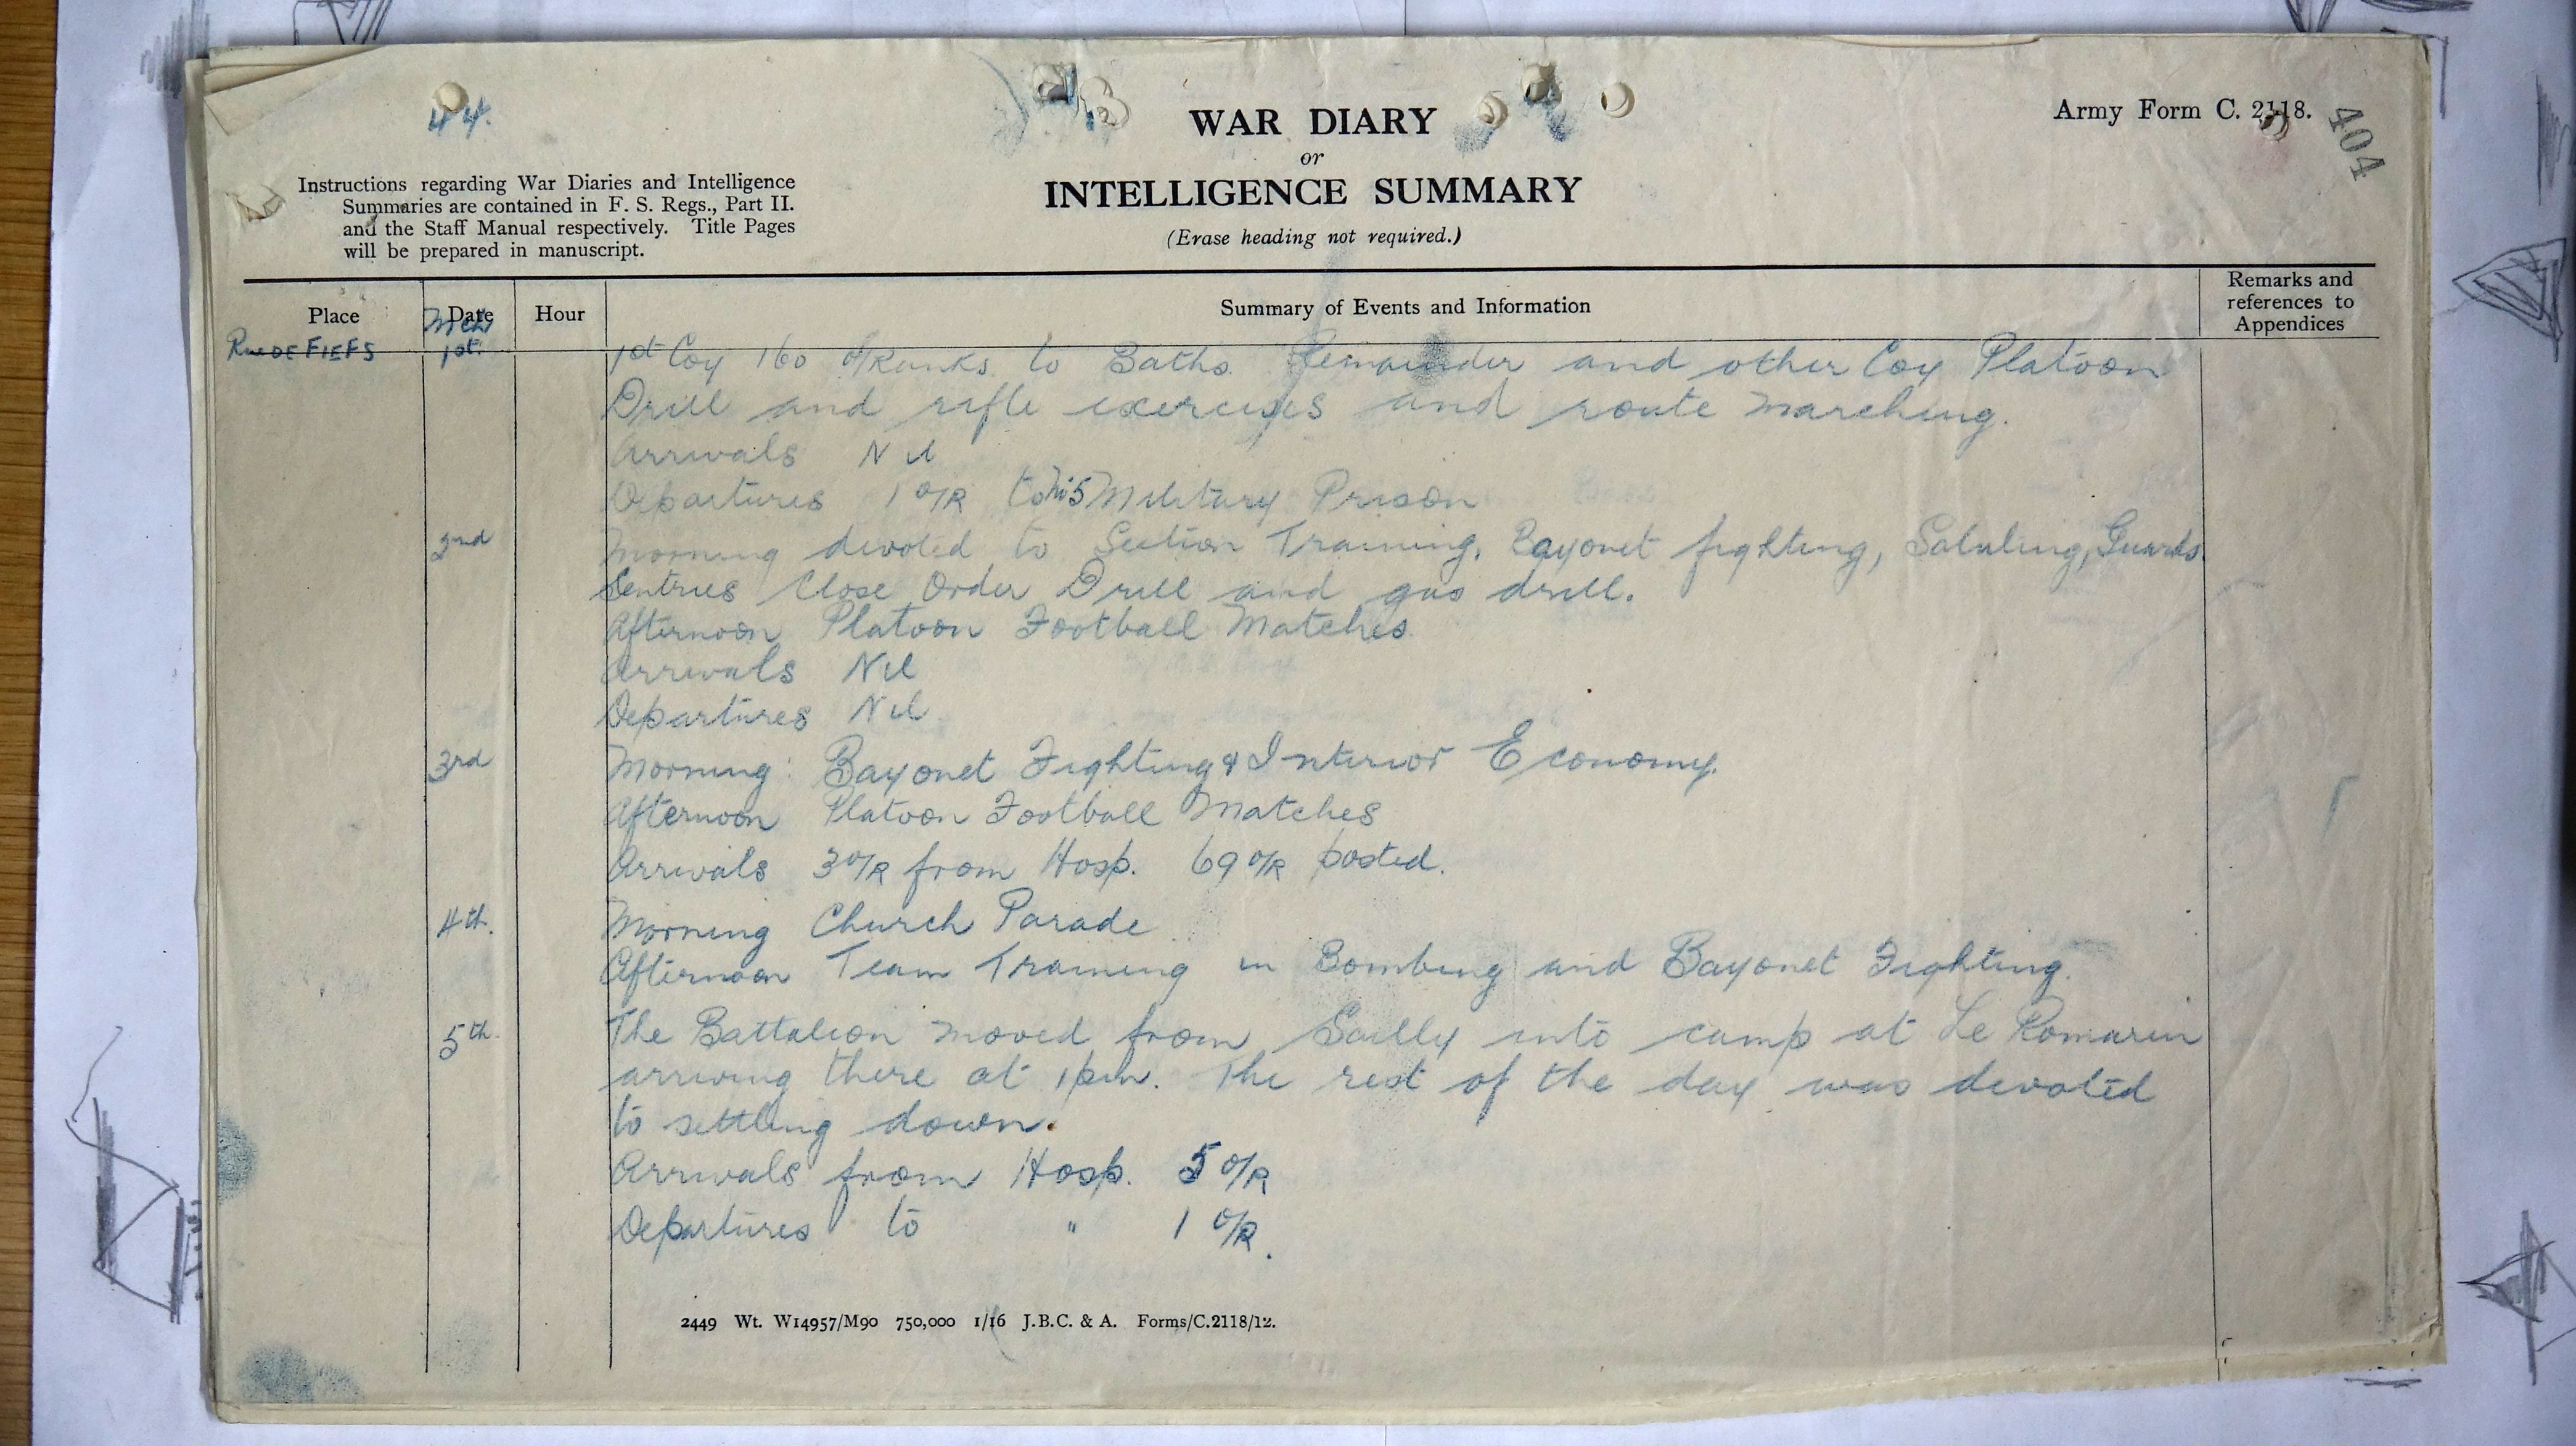 44.
WAR DIARY
or
INTELLIGENCE SUMMARY
(Erase heading not required.)
Army Form C. 2118.
404
Instructions regarding War Diaries and Intelligence
Summaries are contained in F. S. Regs., Part II.
and the Staff Manual respectively. Title Pages
will be prepared in manuscript.
Place
Date
Hour
Summary of Events and Information
Remarks and
references to
Appendices
Mch
Rue DE FIEFS 1st. 1st Coy 160 O/Ranks to Baths. Remainder and other Coy Platoon
Drill and rifle exercises and route marching.
Arrivals Nil
Departures 1 O/R to No 5 Military Prison
2nd Morning devoted to Section Training, Bayonet fighting, Saluting, Guards
Sentries Close Order Drill and gas drill.
Afternoon Platoon Football Matches
Arrivals Nil
Departures Nil
3rd Morning: Bayonet Fighting & Interior Economy.
Afternoon Platoon Football Matches
Arrivals 3 O/R from Hosp. 69 O/R posted.
4th. Morning Church Parade
Afternoon Team Training in Bombing and Bayonet Fighting.
5th. The Battalion moved from Sailly into camp at Le Romarin
arriving there at 1pm. The rest of the day was devoted
to settling down.
Arrivals from Hosp. 5 O/R
Departures to " 1 O/R.
2449 Wt. W14957/M90 750,000 1/16 J.B.C. & A. Forms/C.2118/12.